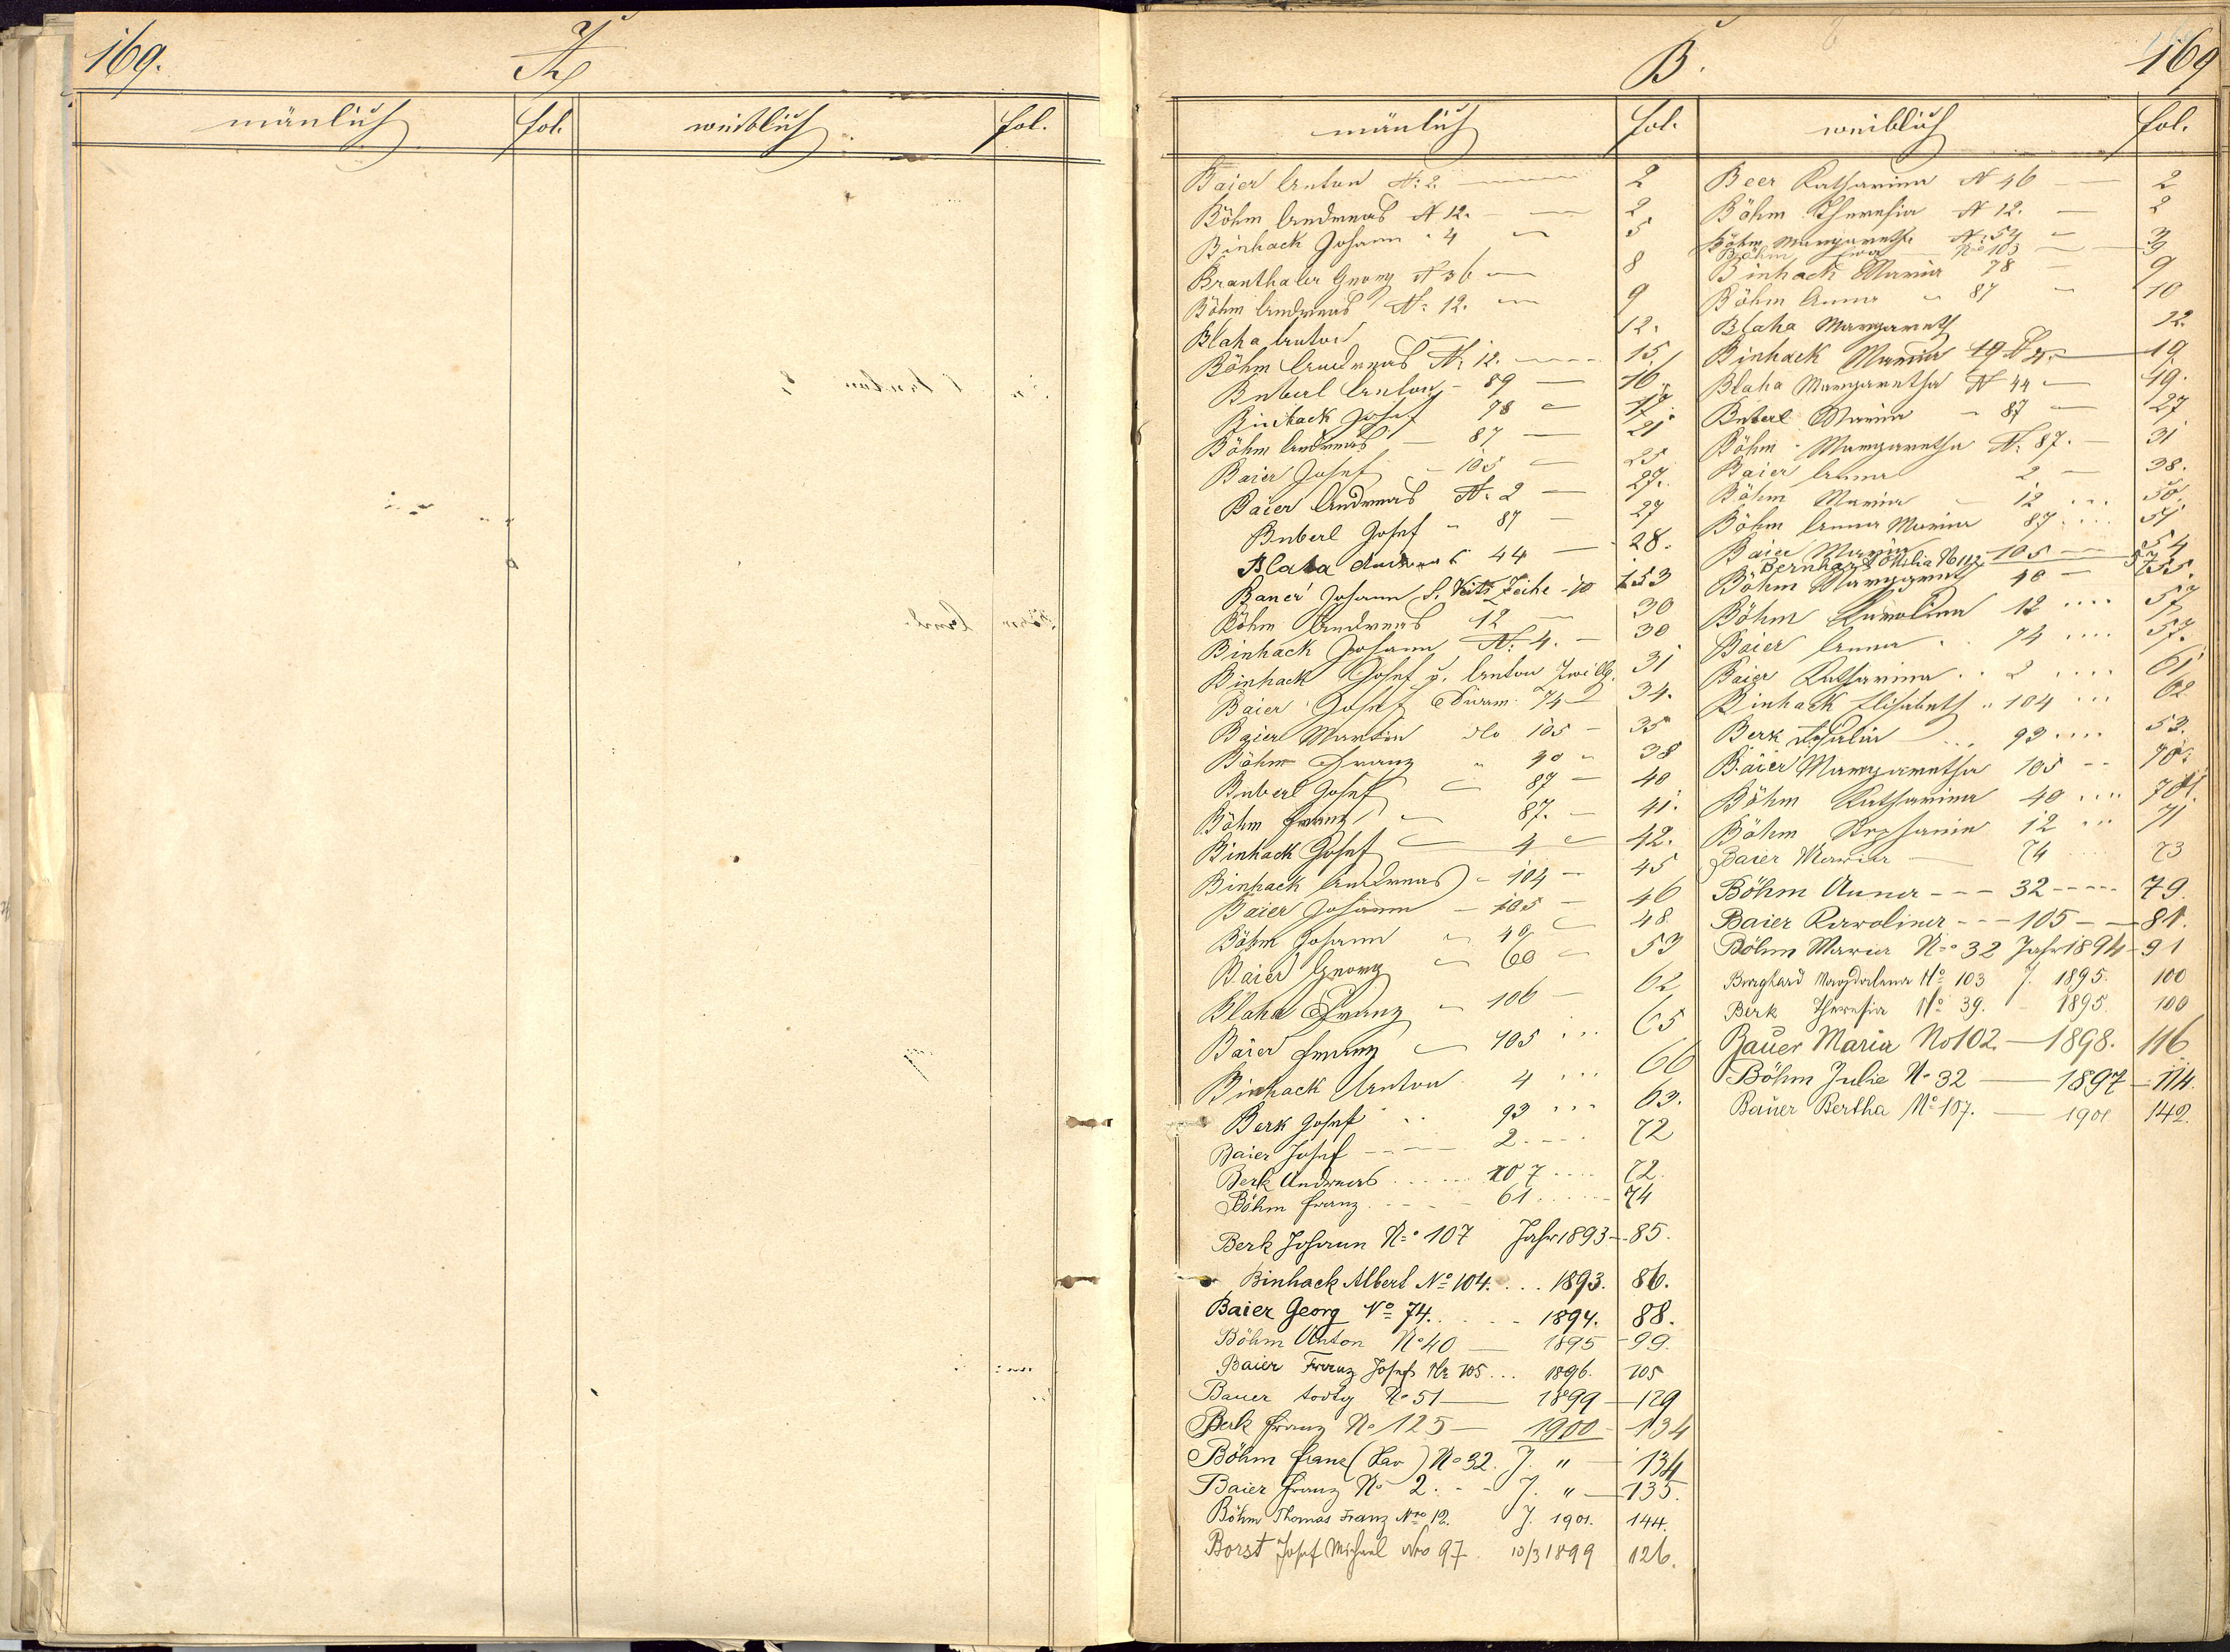 169.
A
mänlich fol. weiblich fol.
B.
169
mänlich fol. weiblich fol.
Baier Anton N: 2. 2
Böhm Andreas N 12. 2
Binhack Johann " 4 5
Branthaler Georg N 36 8
Böhm Andreas N: 12. 9
Blaha Anton 12.
Böhm Andreas N: 12. 15
Buberl Anton - 89 16
Binhack Josef 78 17.
Böhm Andreas - 87 21
Baier Josef - 105 25
Baier Andreas N: 2 27.
Buberl Josef " 87 27
Blaha Andreas 44 28.
Johann S. Veits Zeche - 10 153
Böhm Andreas 12 30
Binhack Johann N: 4. 30
Binhack Josef u. Anton Zwillg. 31
Baier Josef 74 34.
Baier Martin dto 105 - 35
Böhm Franz " 40 " 38
Buberl Josef 87 - 40
Böhm Franz 87. - 41.
Binhack Josef 4 42.
Binhack Andreas - 104 - 45
Baier Johann - 105 - 46
Böhm Johann " 40 48
Baier Georg 60 53
Blaha Franz " 106 - 62
Baier Franz 105 65
Binhack Anton 4 66
Berk Josef 93 63.
Baier Josef 2 72
Berk Andreas 107 72.
Böhm Franz 61 74
Berk Johann No 107 Jahr 1893 - 85.
Binhack Albert No 104. . . . 1893. 86.
Baier Georg No 74. 1894. 88.
Böhm Anton No 40 - 1895 - 99.
Baier Franz Josef Nr 105 . . . 1896. 105
Bauer todtg No 51 - 1899 - 129
Berk Franz No 125 - 1900 - 134
Böhm Franz (Xav) No 32. J. " - 134
Baier Franz No 2. - - J. " - 135.
Böhm Thomas Franz Nro 12. J. 1901. 144.
Borst Josef Michael Nro 97. 10/3 1899 126.
Beer Katharina N 46 2
Böhm Theresia N 12. 2
Böhm Margareth N: 54 3
Böhm No 103 3
Binhack Maria 78 9
Böhm Anna " 87 10
Blaha Margareth 12.
Binhack Maria 19 19
Blaha Margaretha N 44 19.
Buberl Maria - 87 27
Böhm Margaretha N: 87. 31
Baier Anna 2 38.
Böhm Maria 12 50.
Böhm Anna Maria 87 . . . 51
Baier Maria 105 54
Bernhart Otilia No 112 57
Böhm Margareth 40 55.
Böhm Karolina 12 . . . . 57
Baier Anna 74 . . . . 57.
Baier Katharina . . 2 . . . . 61
Binhack Elisabeth " 104 . . . 62
Berk 93 . . . . 53.
Baier Margaretha 105 - - 70.
Böhm Katharina 40 . . . . 70.
Böhm Stephanie 12 . . . 71
Baier Maria 74 73
Böhm Anna - - - 32 - - - - - 79.
Baier Karolina - - - 105 - - 81.
Böhm Maria No 32 Jahr 1894 - 91
Burghard Magdalena No 103 J. 1895. 100
Berk Theresia No 39. 1895. 100
Bauer Maria No 102. - 1898. 116
Böhm Julie No 32 - 1897 - 114.
Bauer Bertha No 107. - 1901 142.